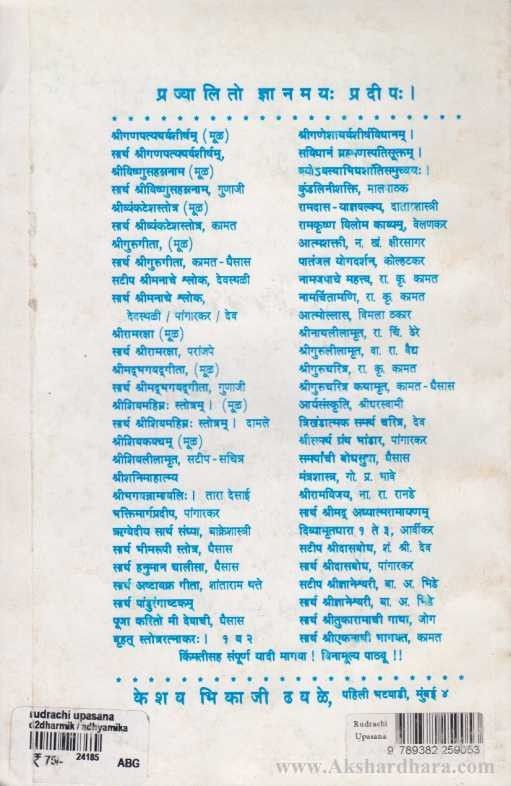 प्रज्वालितो ज्ञानमयः प्रदीपः।
श्रीगणपत्यथर्वशीर्षम् (मूळ)
सार्थ श्रीगणपत्यथर्वशीर्षम्,
श्रीविष्णुसहस्रनाम (मूळ)
सार्थ श्रीविष्णुसहस्रनाम, गुणाजी
श्रीव्यंकटेशस्तोत्र (मूळ)
सार्थ श्रीव्यंकटेशस्तोत्र, कामत
श्रीगुरुगीता, (मूळ)
सार्थ श्रीगुरुगीता, कामत-पैसास
सटीप श्रीमनाचे श्लोक, देवस्थळी
सार्थ श्रीमनाचे श्लोक,
देवस्थळी / पांगारकर / देव
श्रीरामरक्षा (मूळ)
सार्थ श्रीरामरक्षा, परांजपे
श्रीमद्भगवद्गीता, (मूळ)
सार्थ श्रीमद्भगवद्गीता, गुणाजी
श्रीशिवमहिम्नः स्तोत्रम्। (मूळ)
सार्थ श्रीशिवमहिम्नः स्तोत्रम्। दामले
श्रीशिवकवचम् (मूळ)
श्रीशिवलीलामृत, सटीप-सचित्र
श्रीशनिमाहात्म्य
श्रीभगवन्नामावलिः। तारा देसाई
भक्तिमार्गप्रदीप, पांगारकर
ऋग्वेदीय सार्थ संध्या, बाक्रेशास्त्री
सार्थ भीमरूपी स्तोत्र, पैसास
सार्थ हनुमान चालीसा, पैसास
सार्थ अष्टावक्र गीता, शांताराम घत्ते
सार्थ पांडुरंगाष्टकम्
पूजा करितो मी देवाची, पैसास
बृहत् स्तोत्ररत्नाकरः। १ व २
श्रीगणेशाथर्वशीर्षविधानम्।
सविधानं ब्रह्मणस्पतिसूक्तम्।
कुंडलिनीशक्ति, मालपाठक
रामदास-याज्ञवल्क्य, दातारशास्त्री
रामकृष्ण विलोम काव्यम्, वेलणकर
आत्मशक्ती, न. खं. क्षीरसागर
पातंजल योगदर्शन, कोल्हटकर
नामजपाचे महत्त्व, रा. कृ. कामत
नामचिंतामणि, रा. कृ. कामत
आत्मोल्लास, विमला ठकार
श्रीनाथलीलामृत, रा. चिं. ढेरे
श्रीगुरुलीलामृत, वा. रा. वैद्य
श्रीगुरुचरित्र, रा. कृ. कामत
श्रीगुरुचरित्र कथामृत, कामत-पैसास
आर्यसंस्कृति, श्रीधरस्वामी
त्रिखंडात्मक समर्थ चरित्र, देव
श्रीसमर्थ ग्रंथ भांडार, पांगारकर
समर्थांची बोधसुधा, पैसास
मंत्रशास्त्र, गो. प्र. भावे
श्रीरामविजय, ना. रा. रानडे
सार्थ श्रीमद् अध्यात्मरामायणम्
दिव्यामृतधारा १ ते ३, आर्वीकर
सटीप श्रीदासबोध, शं. श्री. देव
सार्थ श्रीदासबोध, पांगारकर
सटीप श्रीज्ञानेश्वरी, बा. अ. भिडे
सार्थ श्रीज्ञानेश्वरी, बा. अ. भिडे
सार्थ श्रीतुकारामाची गाथा, जोग
सार्थ श्रीएकनाथी भागवत, कामत
किंमतीसह संपूर्ण यादी मागवा ! विनामूल्य पाठवू !!
केशव भिकाजी ढवळे, पहिली भटवाडी, मुंबई ४
rudrachi upasana
d2dharmik / adhyamika
₹ 75/- 24185 ABG
Rudrachi
Upasana
9 789382 259053
www.Akshardhara.com